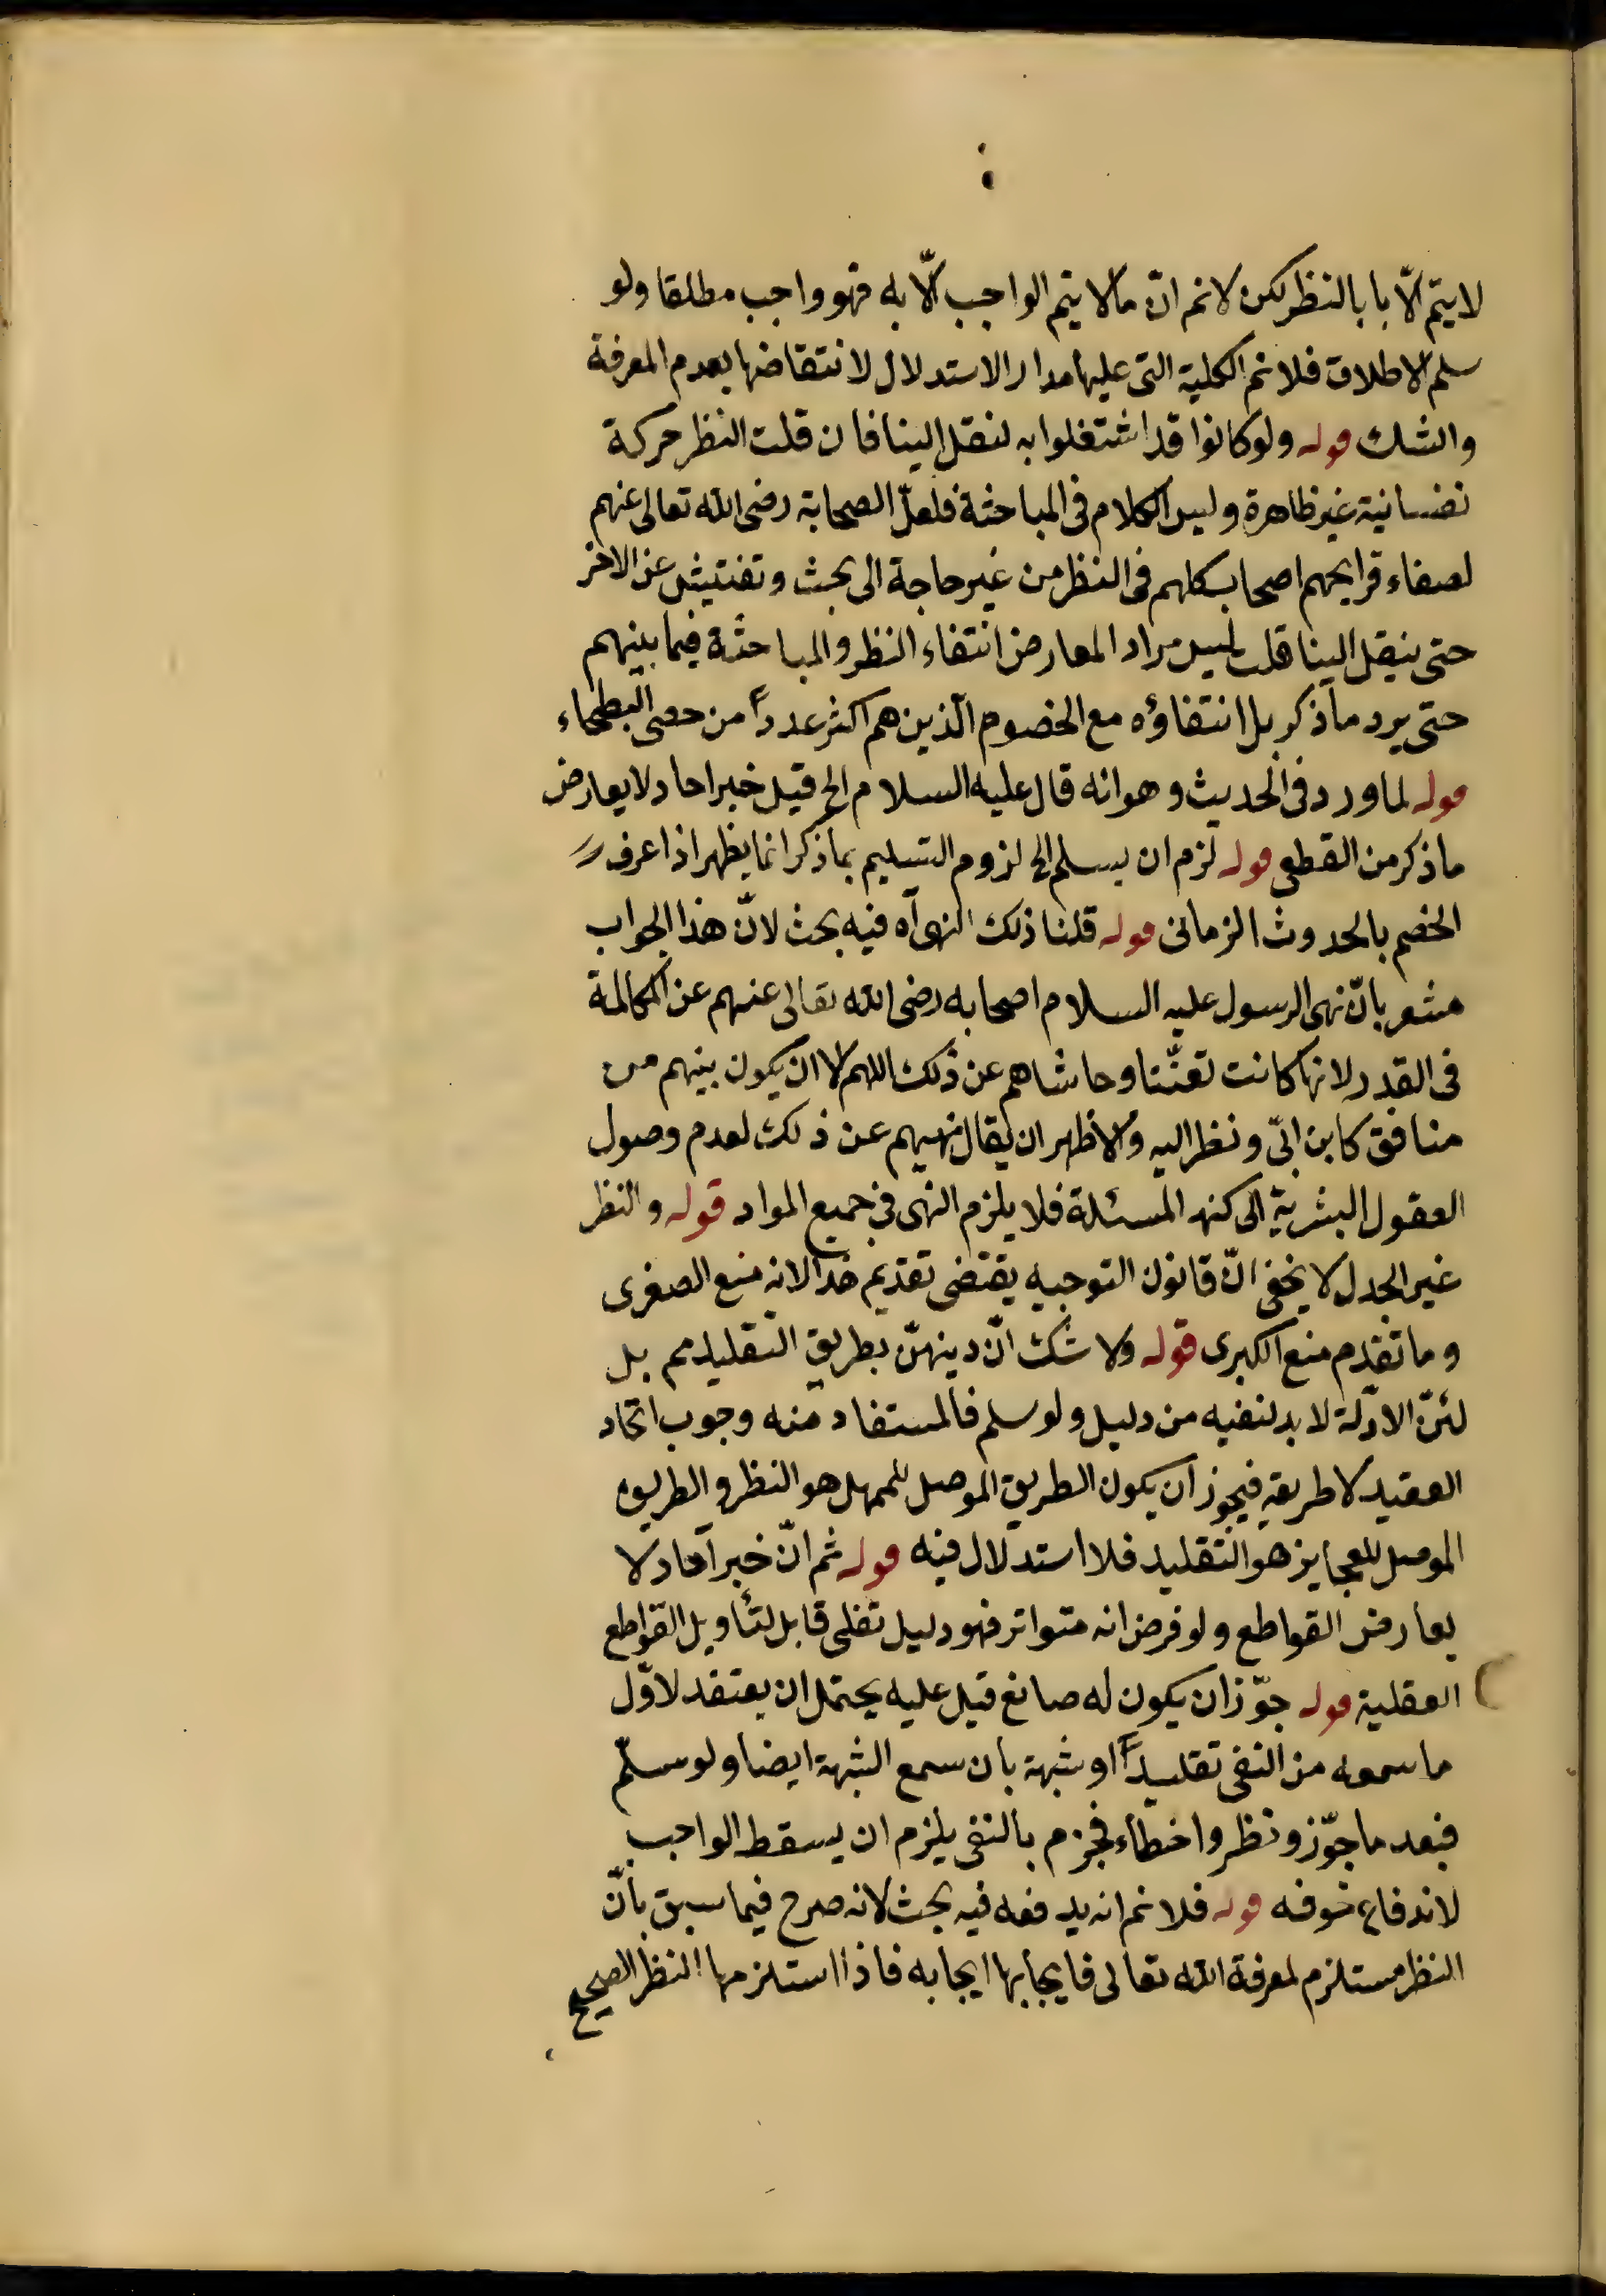 لا يتمّ الّا با بالنظر لكن لا نم انّ ما لا يتم الواجب الّا به فهو واجب مطلقا ولو
سلم الاطلاق فلا نم الكلية التى عليها مدار الاستدلال لانتقاضها بعدم المعرفة
والشك قوله ولو كانوا قد اشتغلوا به لنقل الينا فان قلت النظر حركة
نفسانية غير ظاهرة وليس الكلام فى المباحثة فلعلّ الصحابة رضى الله تعالى عنهم
لصفاء قرايحهم اصحاب كلهم فى النظر من غير حاجة الى بحث وتفتيش عن الاخر
حتى ينقل الينا قلت ليس مراد المعارض انتفاء النظر والمباحثة فيما بينهم
حتى يرد ما ذكر بل انتفاؤه مع الخصوم الّذين هم اكثر عدداً من حصى البطحاء
قوله لما ورد فى الحديث وهو انه قال عليه السلام الخ قيل خبر احاد لا يعارض
ما ذكر من القطعى قوله لزم ان يسلم الخ لزوم التسليم بما ذكر انما يظهر اذا اعرف
الخصم بالحدوث الزمانى قوله قلنا ذلك النهى آه فيه بحث لانّ هذا الجواب
مشعر بانّ نهى الرسول عليه السلام اصحابه رضى الله تعالى عنهم عن المكالمة
فى القدر لانها كانت تعنّتا وحاشاهم عن ذلك اللهم الا ان يكون بينهم من
منافق كابن ابىّ ونظر اليه والاظهر ان يقال نهيهم عن ذلك لعدم وصول
العقول البشرية الى كنه المسئلة فلا يلزم النهى فى جميع المواد قوله والنظر
غير الجدل لا يخفى انّ قانون التوجيه يقتضى تقديم هذا لانه منع الصغرى
وما تقدم منع الكبرى قوله ولا شك انّ دينهنّ بطريق التقليد مم بل
لئنّ الادلّة لا بد لنفيه من دليل ولو سلم فالمستفاد منه وجوب اتحاد
العقيد لا طريقه فيجوز ان يكون الطريق الموصل للمهل هو النظر والطريق
الموصل للعجايز هو التقليد فلا استدلال فيه قوله ثم انّ خبر آحاد لا
يعارض القواطع ولو فرض انه متواتر فهو دليل نقلى قابل لتأويل القواطع
العقلية قوله جوّز ان يكون له صانع قيل عليه يحتمل ان يعتقد لاوّل
ما سمعه من النفى تقليداً او شبهة بان سمع الشبهة ايضا ولو سلّم
فبعد ما جوّز ونظر واخطاء فجزم بالنفى يلزم ان يسقط الواجب
لاندفاع خوفه قوله فلا نم انه يدفعه فيه بحث لانه صرح فيما سبق بانّ
النظر مستلزم لمعرفة الله تعالى فايجابها ايجابه فاذا استلزمها النظر الصحيح